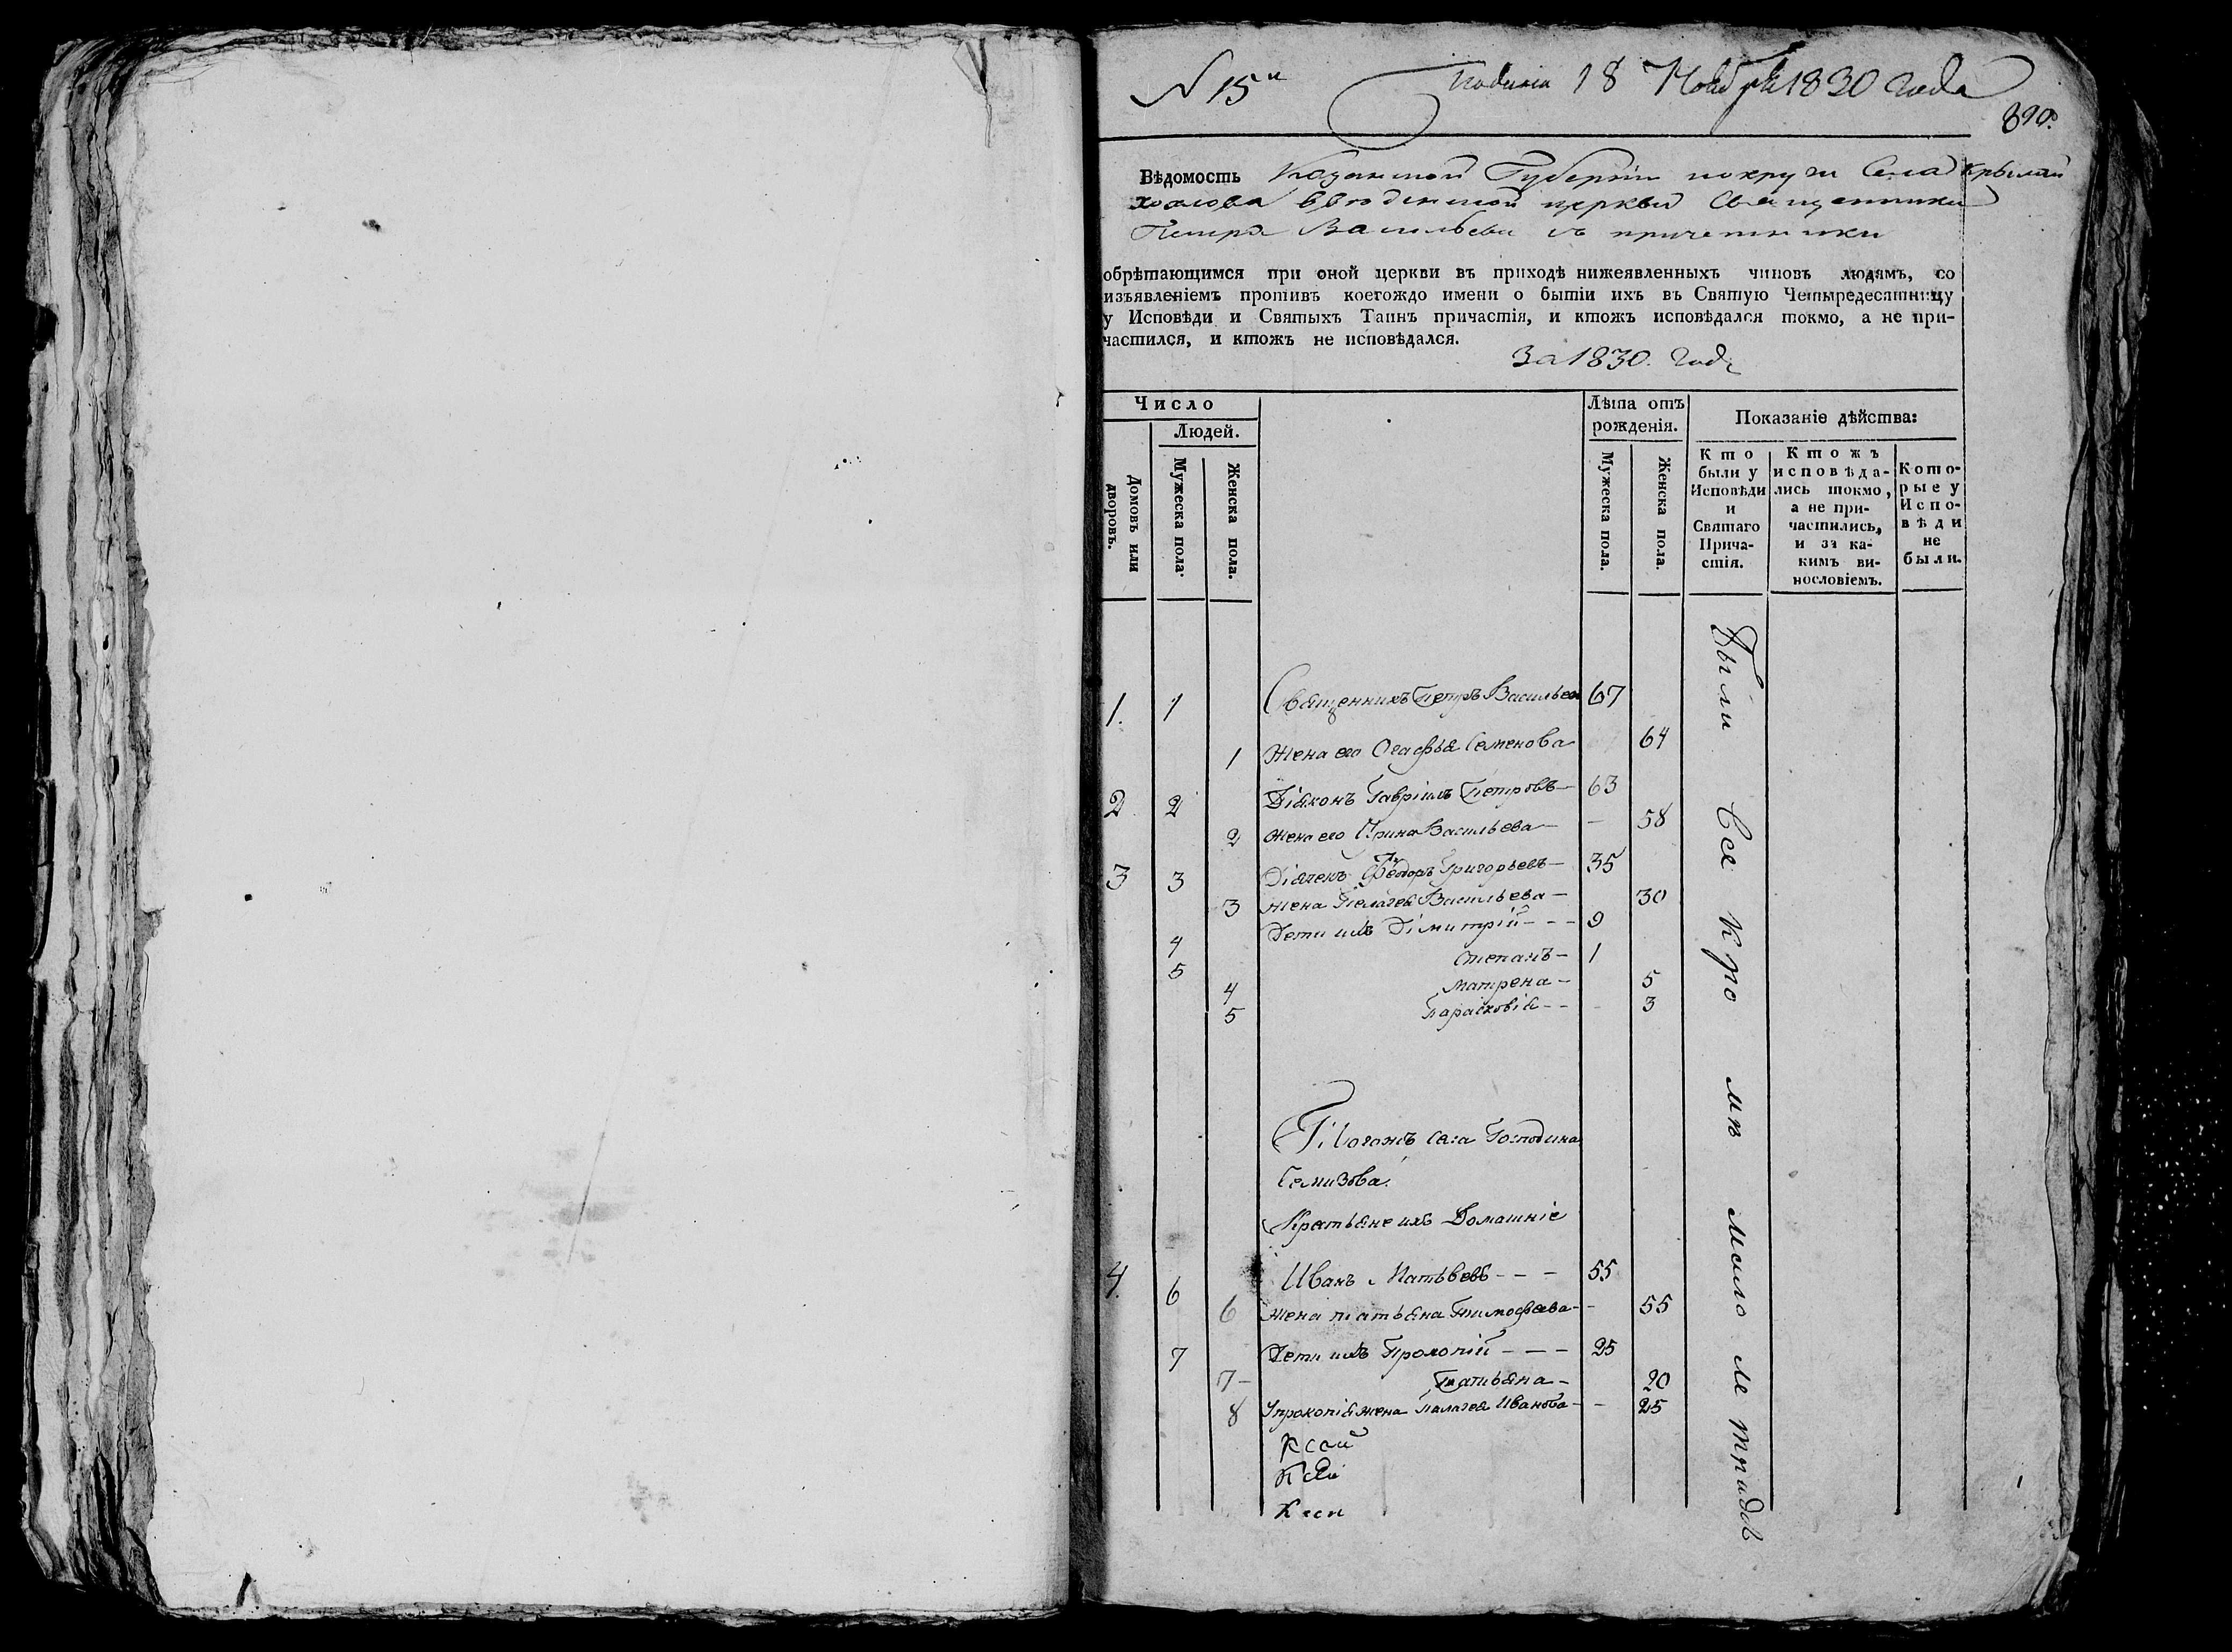 N 15й
18 Ноября 1830 года
890.
Вѣдомость Казанской Губернiи округи Села
Введенской церкви Священника
Петра Васильева съ причетники
обрѣтающимся при оной церкви въ приходѣ нижеявленныхъ чиновъ людямъ, со
изъявленiемъ противъ коегождо имени о бытiи ихъ въ Святую Четыредесятницу
у Исповѣди и Святыхъ Таинъ причастiя, и ктожъ исповѣдался токмо, а не при-
частился, и ктожъ не исповѣдался.
За 1830. годъ
Число
Людей.
Домовъ или
дворовъ.
Мужеска пола.
Женска пола.
Лѣта отъ
рожденiя.
Мужеска пола.
Женска пола.
Показанiе дѣйства:
Кто
были у
Исповѣди
и
Святаго
Прича-
стiя.
Ктожъ
исповѣда-
лись токмо,
а не при-
частились,
и за ка-
кимъ ви-
нословiемъ.
Кото-
рые у
Испо-
вѣди
не
были.
1. 1 Священникъ Петръ Васильевъ 67
1 Жена его Агафья Семенова 64
2 2 Дiаконъ Гаврiилъ Петровъ 63
2 жена его Ирина Васильева 58
3 3 Дiячекъ Феодоръ Григорьевъ 35
3 жена Пелагея Васильева 30
4 Дети ихъ Димитрiй 9
5 Степанъ 1
4 Матрена 5
5 Парасковiя 3
села Господина
Семизова
Крестьяне ихъ Домашнiе
4. 6 Иванъ Матвѣевъ 55
6 жена татьяна Тимофеева 55
7 Дети ихъ Прокопiй 25
7 Татьяна 20
8 Упрокопiя жена Палагея Иванова 25
Были Все